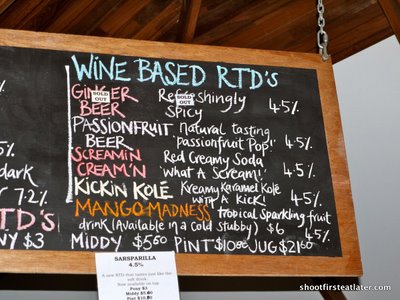 WINE BASED RTD's
GINGER Refreshingly
SOLD OUT SOLD OUT
BEER Spicy 4.5%
PASSIONFRUIT Natural tasting
BEER 'Passionfruit Pop!' 4.5%
SCREAMIN Red Creamy Soda
CREAM'N 'What A Scream!' 4.5%
KICKIN KOLE Kreamy Karamel Kole
WITH A KICK! 4.5%
MANGO MADNESS tropical Sparkling fruit
drink (Available in a cold stubby) $6 4.5%
MIDDY $5.60 PINT $10.80 JUG $21.60
%
5%
dark
7.2%
RTD's
NY $3
SARSPARILLA
4.5%
A new RTD that tastes just like the
soft drink.
Now available on tap
Pony $3
Middy $5.60
Pint $10.80
shootfirsteatlater.com